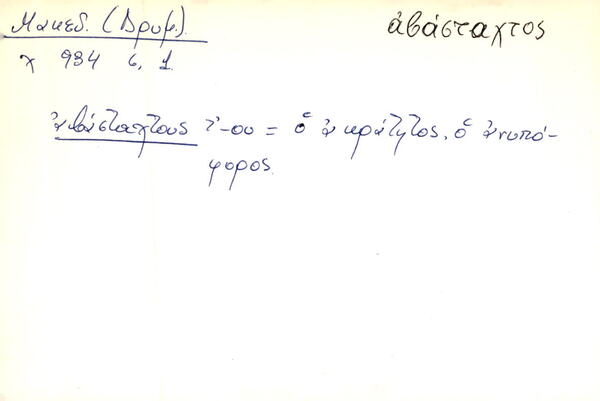 Μακεδ. (Δρυμ.)
ἀβάσταχτος
χ 934 6, 1.
ἀβάσταχτους τ'-ου = ὁ ἀκράτητος, ὁ ἀνυπό-
φορος.